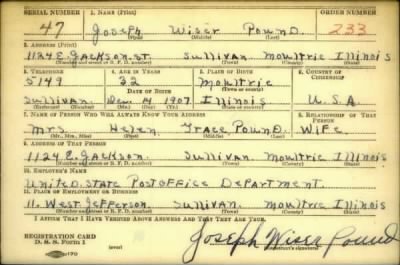 SERIAL NUMBER 1. NAME (Print) ORDER NUMBER
47 Joseph Wiser Pound 233
(First) (Middle) (Last)
2. ADDRESS (Print)
1124 E. Jackson. st. Sullivan Moultrie Illinois
(Number and street or R. F. D. number) (Town) (County) (State)
3. TELEPHONE 4. AGE IN YEARS 5. PLACE OF BIRTH 6. COUNTRY OF CITIZENSHIP
5149 32 Moultrie
(Town or county)
DATE OF BIRTH
Sullivan Dec 4 1907 Illinois U.S.A
(Exchange) (Number) (Mo.) (Day) (Yr.) (State or country)
7. NAME OF PERSON WHO WILL ALWAYS KNOW YOUR ADDRESS 8. RELATIONSHIP OF THAT PERSON
Mrs. Helen Grace Pound. Wife
(Mr., Mrs., Miss) (First) (Middle) (Last)
9. ADDRESS OF THAT PERSON
1124 E. Jackson. Sullivan. Moultrie Illinois
(Number and street or R. F. D. number) (Town) (County) (State)
10. EMPLOYER'S NAME
United. State Postoffice Department.
11. PLACE OF EMPLOYMENT OR BUSINESS
11. West Jefferson. Sullivan Moultrie Illinois
(Number and street or R. F. D. number) (Town) (County) (State)
I AFFIRM THAT I HAVE VERIFIED ABOVE ANSWERS AND THAT THEY ARE TRUE.
REGISTRATION CARD
D. S. S. Form 1 (over) Joseph Wiser Pound
(Registrant's signature)